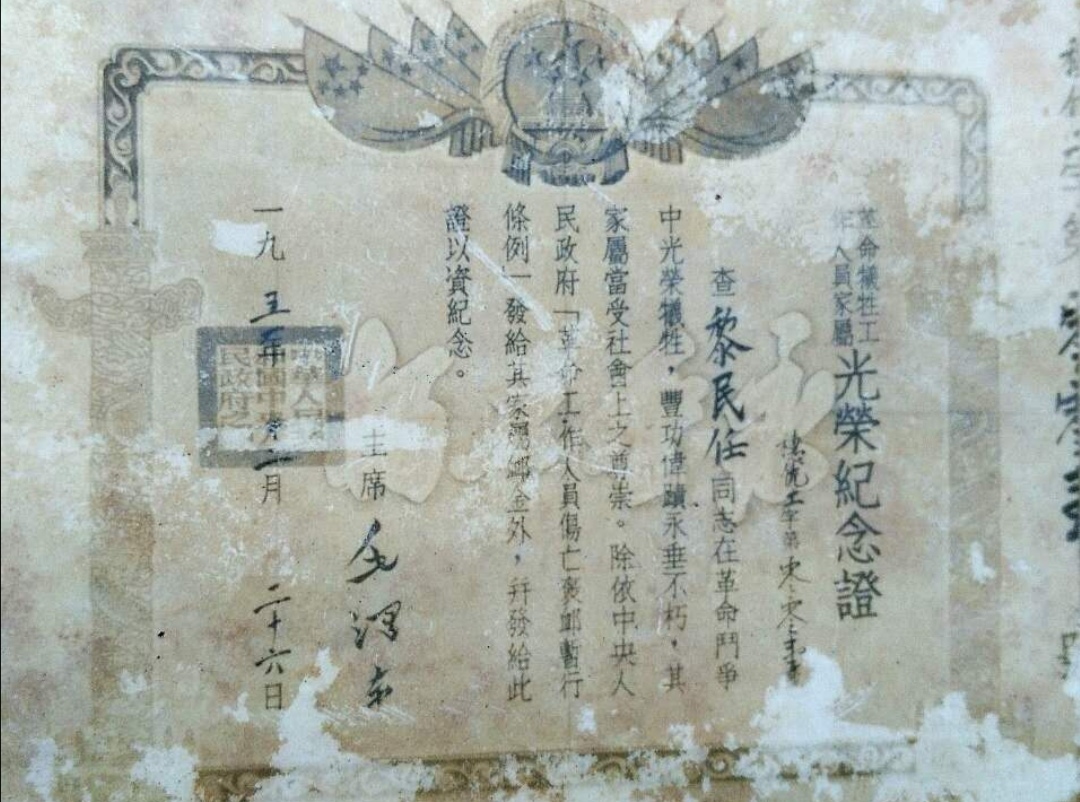 革命犧牲工
作人員家屬
光榮紀念證
字第
查黎民任同志在革命鬥爭
中光榮犧牲,豐功偉蹟永垂不朽,其
家屬當受社會上之尊崇。除依中央人
民政府「革命工作人員傷亡褒卹暫行
條例」發給其家屬卹金外,幷發給此
證以資紀念。
主席 毛澤东
一九五 年 月二十六日
中華人民
共和國中央
人民政府之印